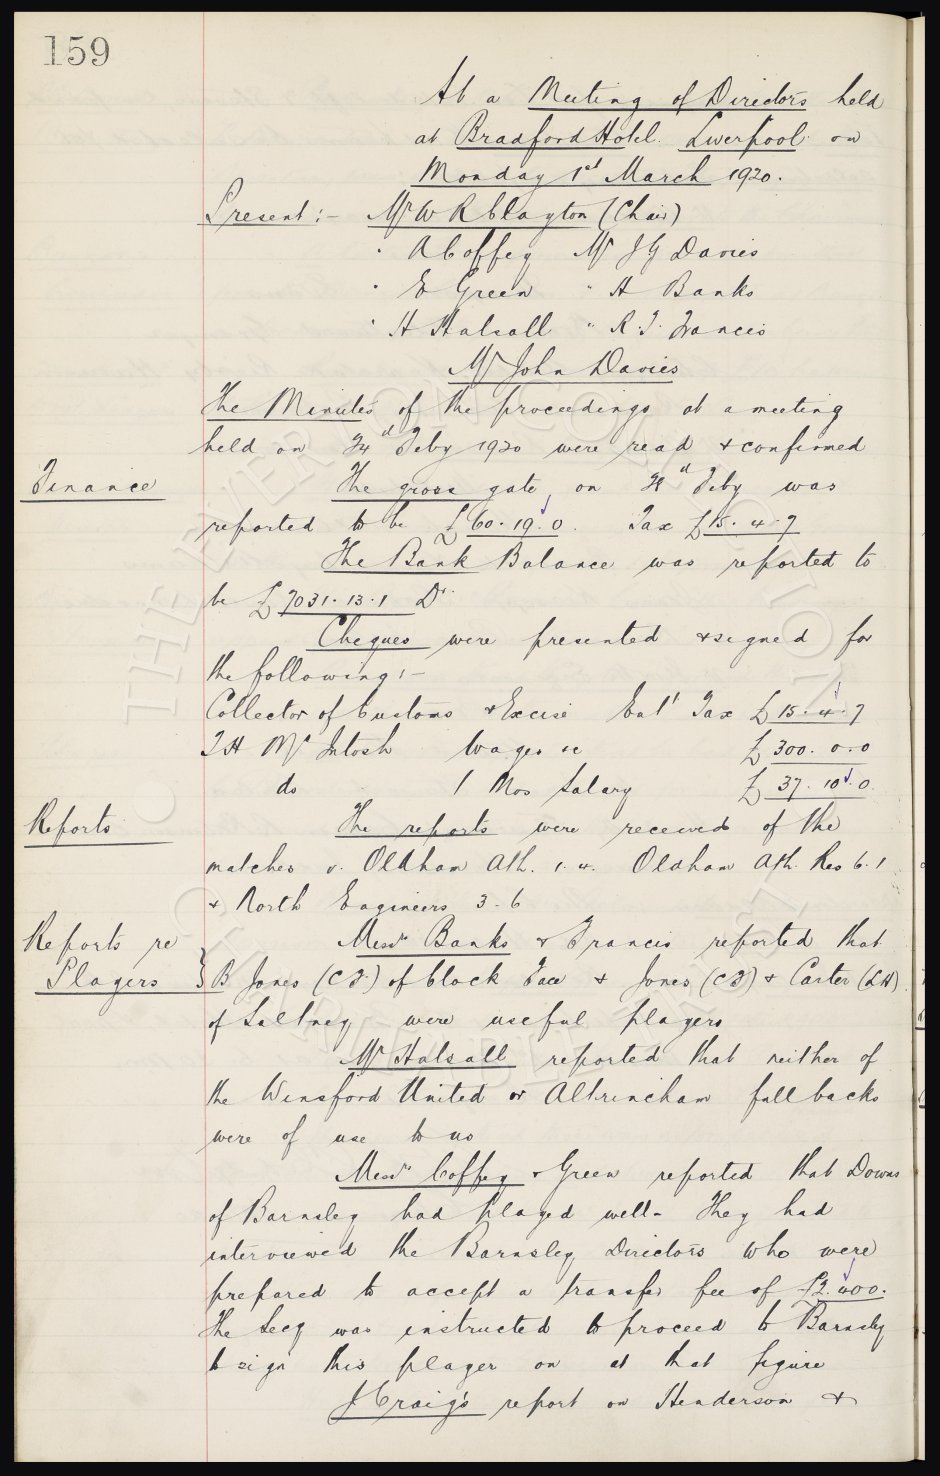 159
At a Meeting of Directors held
at Bradford Hotel. Liverpool on
Monday 1st March 1920.
Present :- Mr W R Clayton (Chair)
" A Coffey Mr J G Davies
" E Green " H Banks
" H Halsall " R. T. Francis
Mr John Davies
The Minutes of the proceedings at a meeting
held on 24th Feby 1920 were read & confirmed
Finance
The gross gate, on 28th Feby was
reported to be £60.19.0. Tax £15.4.7
The Bank Balance was reported to
be £7031.13.1 Dr.
Cheques were presented & signed for
the following :-
Collector of Customs & Excise Ent Tax £15.4.7
T H McIntosh Wages &c £300.0.0
do 1 Mos Salary £37.10.0
Reports
The reports were received of the
matches v. Oldham Ath. 1.4. Oldham Ath. Res 6.1
& North Engineers 3-6
Reports re
Players
Messrs Banks & Francis reported that
B Jones (CF) of Clock Face & Jones (CF) & Carter (LH)
of Saltney were useful players
Mr Halsall reported that neither of
the Winsford United or Altrincham full backs
were of use to us
Messrs Coffey & Green reported that Downs
of Barnsley had played well - They had
interviewed the Barnsley Directors who were
prepared to accept a transfer fee of £2.400.
The Secy was instructed to proceed to Barnsley
to sign this player on at that figure
J Craig's report on Henderson &
THE EVERTON COLLECTION